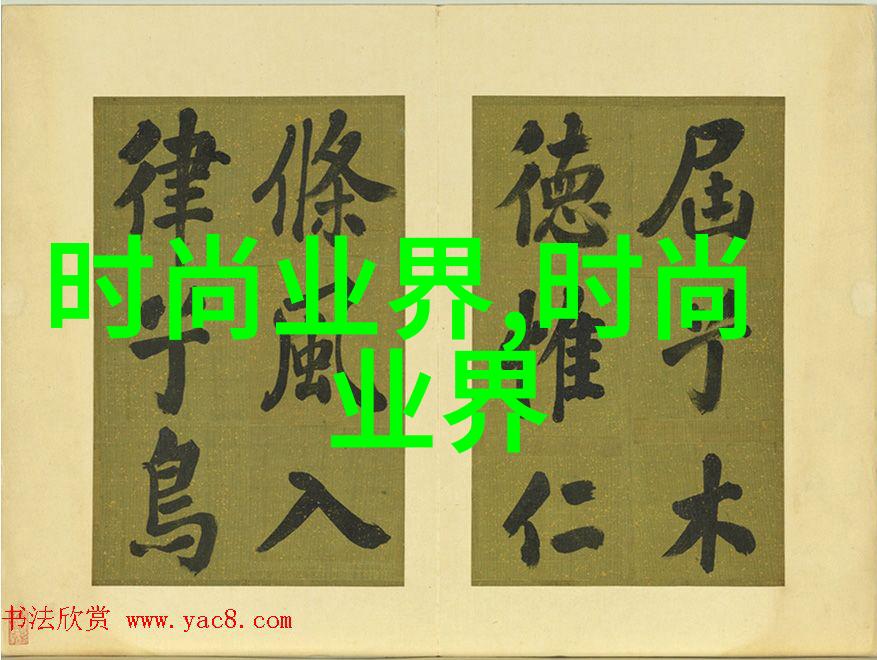 时尚业界,时尚
业界
屆木
德惟仁
條風入
律鳥
书法欣赏 www.yac8.com